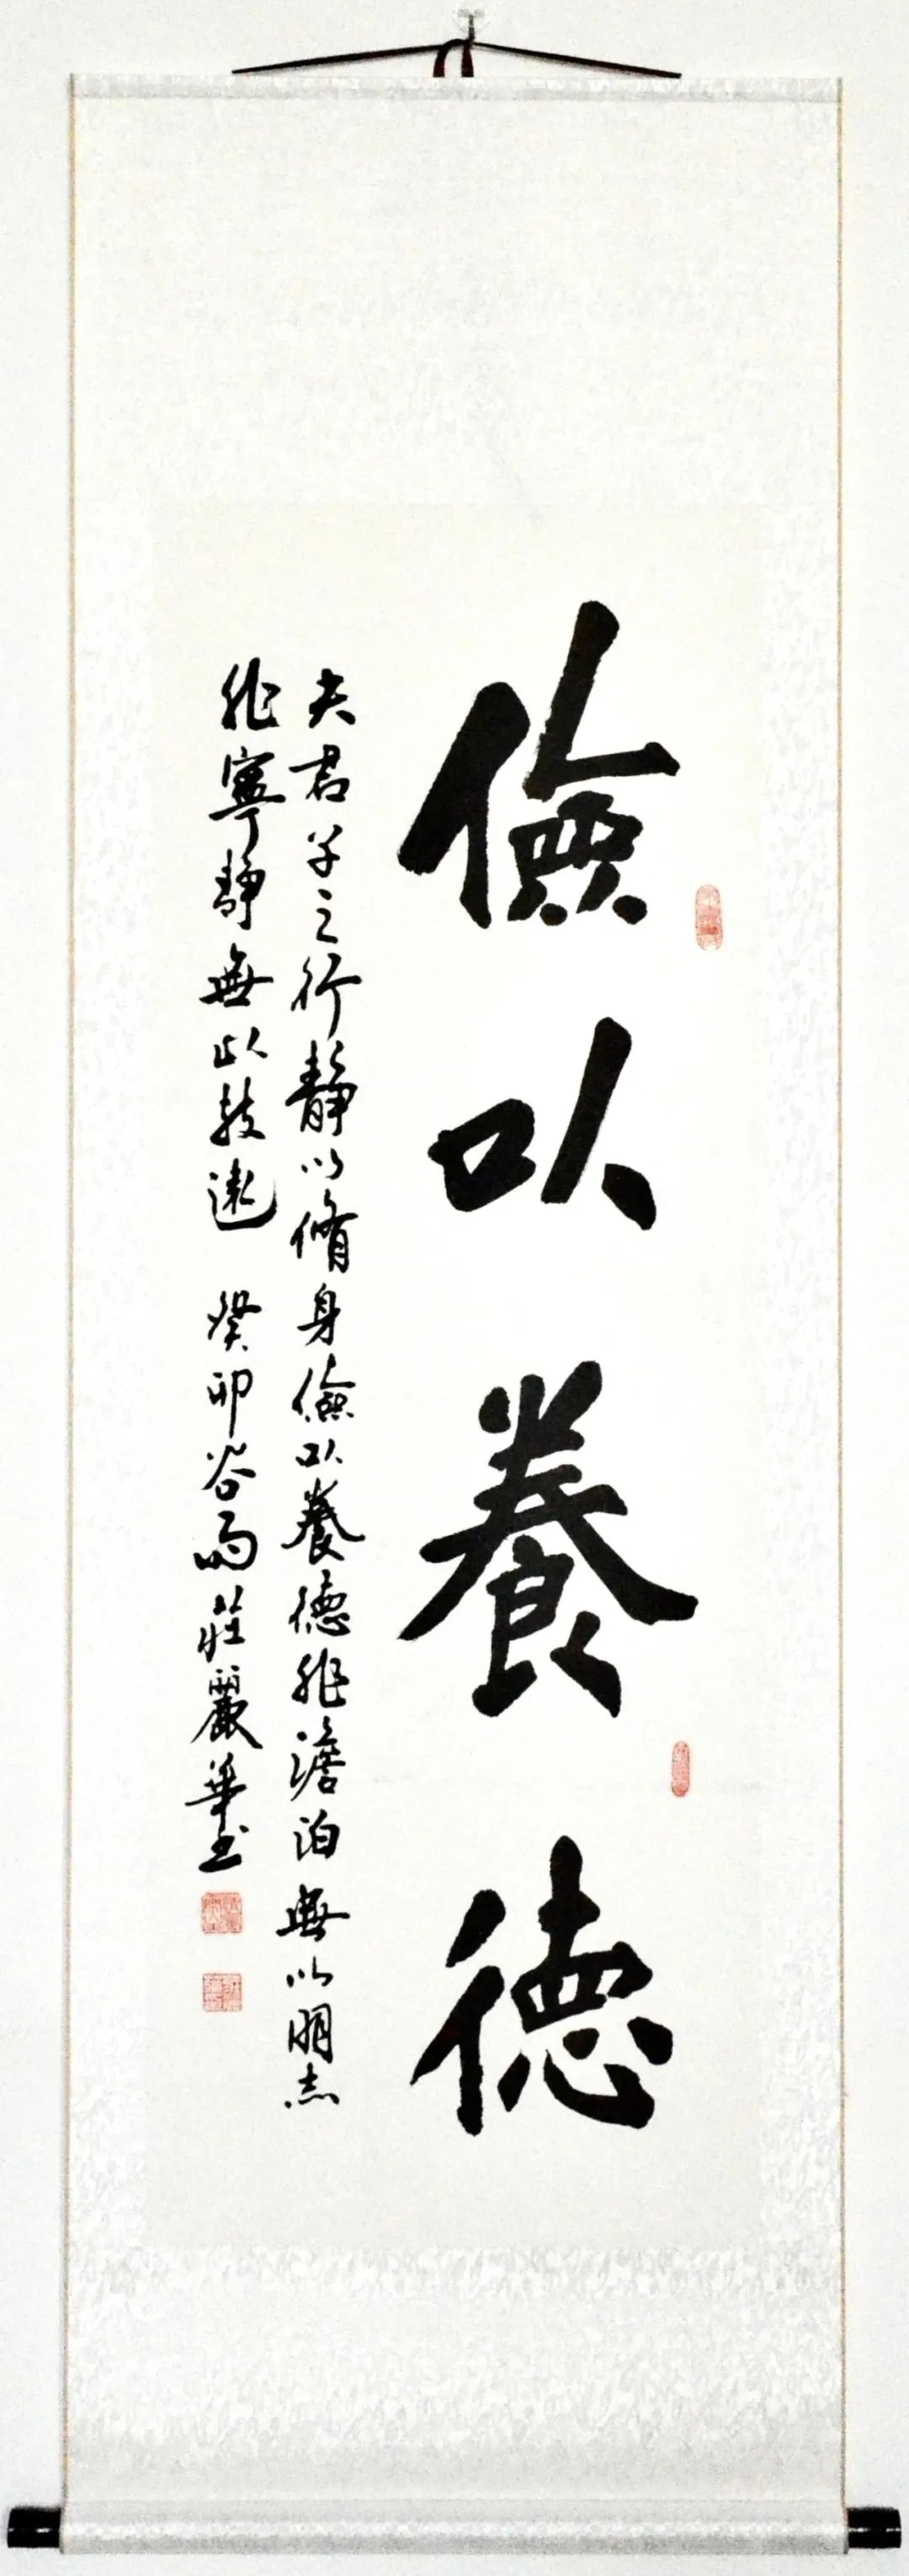 儉以養德
夫君子之行靜以脩身儉以養德非澹泊無以明志
非寧靜無以致遠 癸卯谷雨莊麗華書